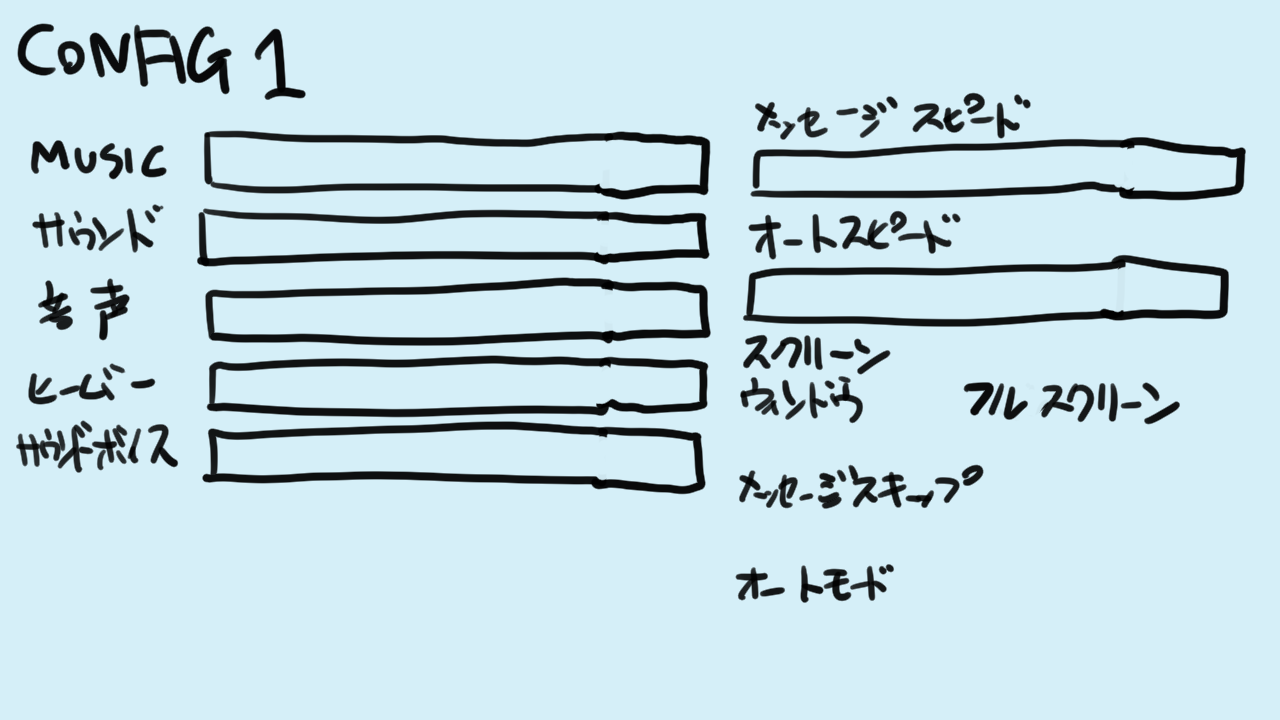 CONFIG 1
MUSIC
サウンド
音声
ヒームービー
サウンドボイス
メッセージスピード
オートスピード
スクリーン
ウィンドウ フルスクリーン
メッセージスキップ
オートモード